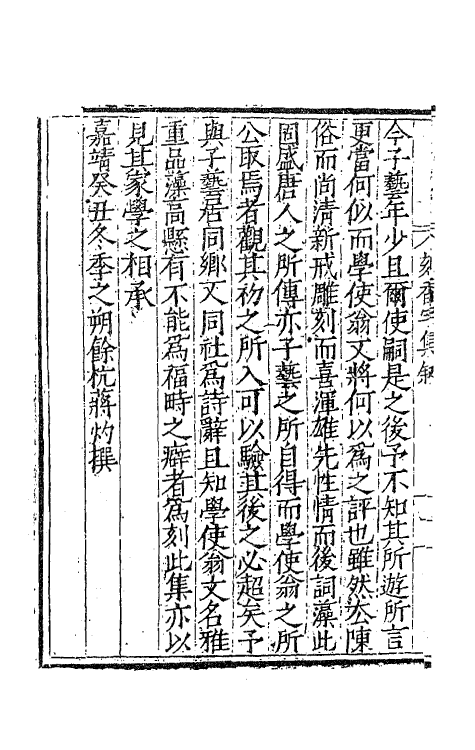 今子藝年少且爾使嗣是之後予不知其所遊所言
更當何似而學使翁又將何以為之評也雖然去陳
俗而尚清新戒雕刻而喜渾雄先性情而後詞藻此
固盛唐人之所傳亦子藝之所自得而學使翁之所
公取焉者觀其初之所入可以驗其後之必超矣予
與子藝居同鄉又同社為詩辭且知學使翁文名雅
重品藻高懸有不能為福時之癖者為刻此集亦以
見其家學之相承
嘉靖癸丑冬季之朔餘杭蔣灼撰